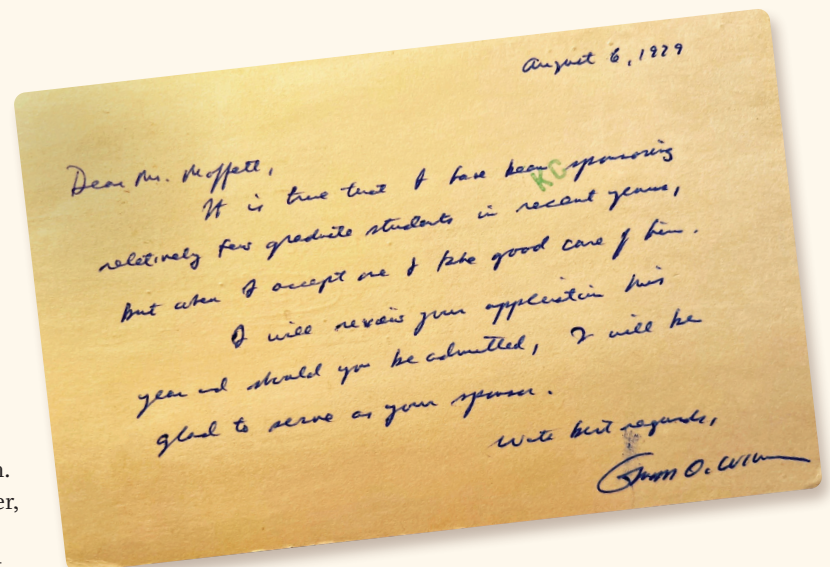 August 6, 1979
Dear Mr. Moffett,
It is true that I have been sponsoring
KG
relatively few graduate students in recent years,
But when I accept one I take good care of him.
I will review your application this
year and should you be admitted, I will be
glad to serve as your sponsor.
With best regards,
O. Wilson
n.
er,